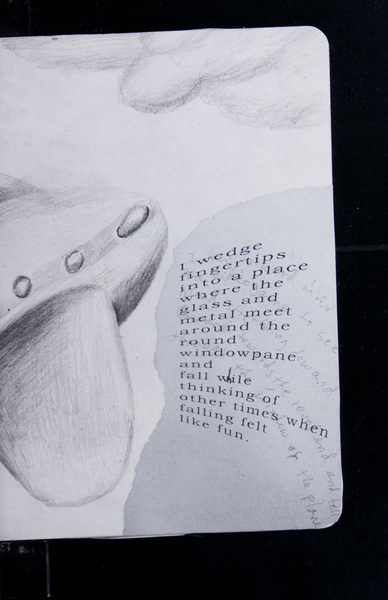 I wedge
fingertips
into a place
where the
glass and
metal meet
around the
round
windowpane
and
fall while
thinking of
other times when
falling felt
like fun.
and fell
of the plane